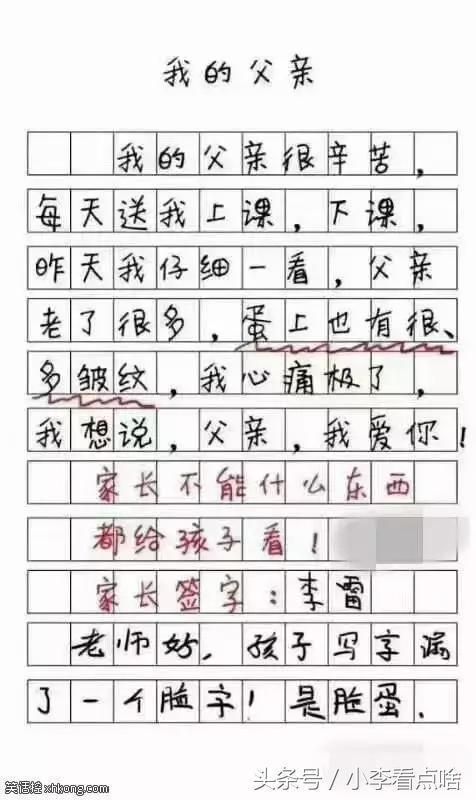 我的父亲
我的父亲很辛苦，
每天送我上课，下课，
昨天我仔细一看，父亲
老了很多，蛋上也有很、
多皱纹，我心痛极了，
我想说，父亲，我爱你！
家长不能什么东西
都给孩子看！
家长签字：李雷
老师好，孩子写字漏
了一个脸字！是脸蛋.
头条号/小李看点啥
笑话堂 xhkong.com